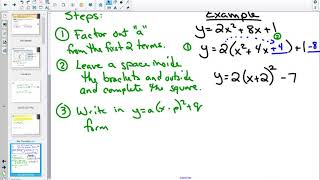 Steps:
① Factor out "a"
from the first 2 terms.
② Leave a space inside
the brackets and outside
and complete the square.
③ Write in y=a(x-p)²+q
form
Example
y=2x²+8x+1
y=2(x²+4x+4)+1-8
y=2(x+2)²-7